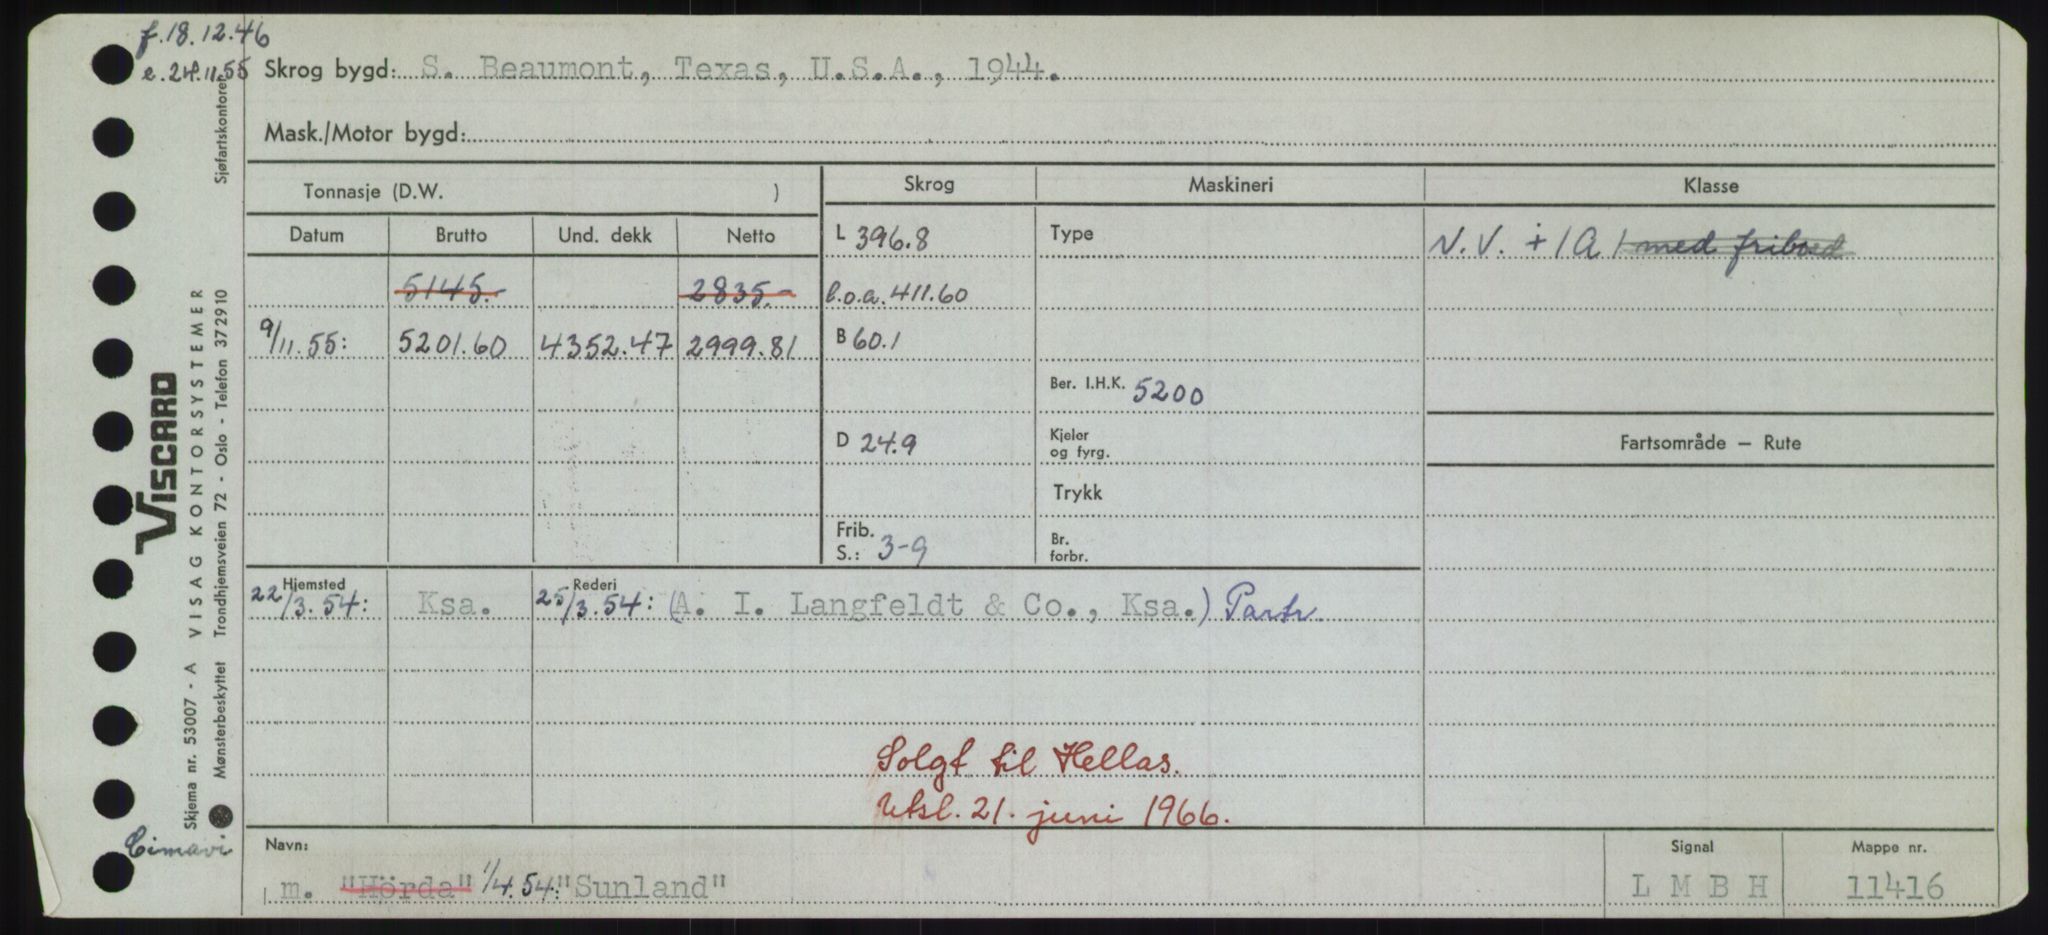 f. 18.12.46
e. 24.11.55
Skrog bygd: S. Beaumont, Texas, U.S.A., 1944.
Mask./Motor bygd:
Tonnasje (D.W. ) Skrog Maskineri Klasse
Datum Brutto Und. dekk Netto L 396.8 Type N.V. + 1A1 med fribord
5145.- 2835.- l.o.a. 411.60
9/11.55: 5201.60 4352.47 2999.81 B 60.1
Ber. I.H.K. 5200
D 24.9 Kjeler og fyrg. Fartsområde – Rute
Trykk
Frib. S.: 3-9 Br. forbr.
Hjemsted Rederi
22/3.54: Ksa. 25/3.54: (A. I. Langfeldt & Co., Ksa.) Partr.
Solgt til Hellas.
Utsl. 21. juni 1966.
Navn: Signal Mappe nr.
m. "Hörda" 1/4.54: "Sunland" L M B H 11416
Viscard
VISAG KONTORSYSTEMER
Sjøfartskontoret
Skjema nr. 53007 - A
Mønsterbeskyttet Trondhjemsveien 72 - Oslo - Telefon 372910